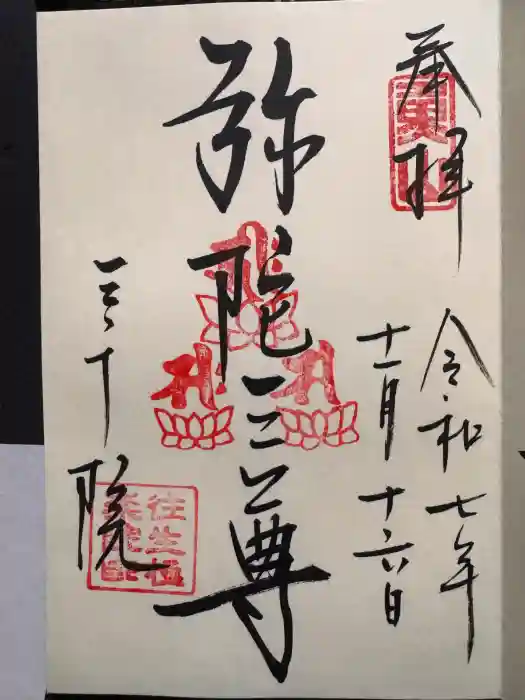 奉拝
令和七年
十一月十六日
弥陀三尊
三千院
往生極
楽院